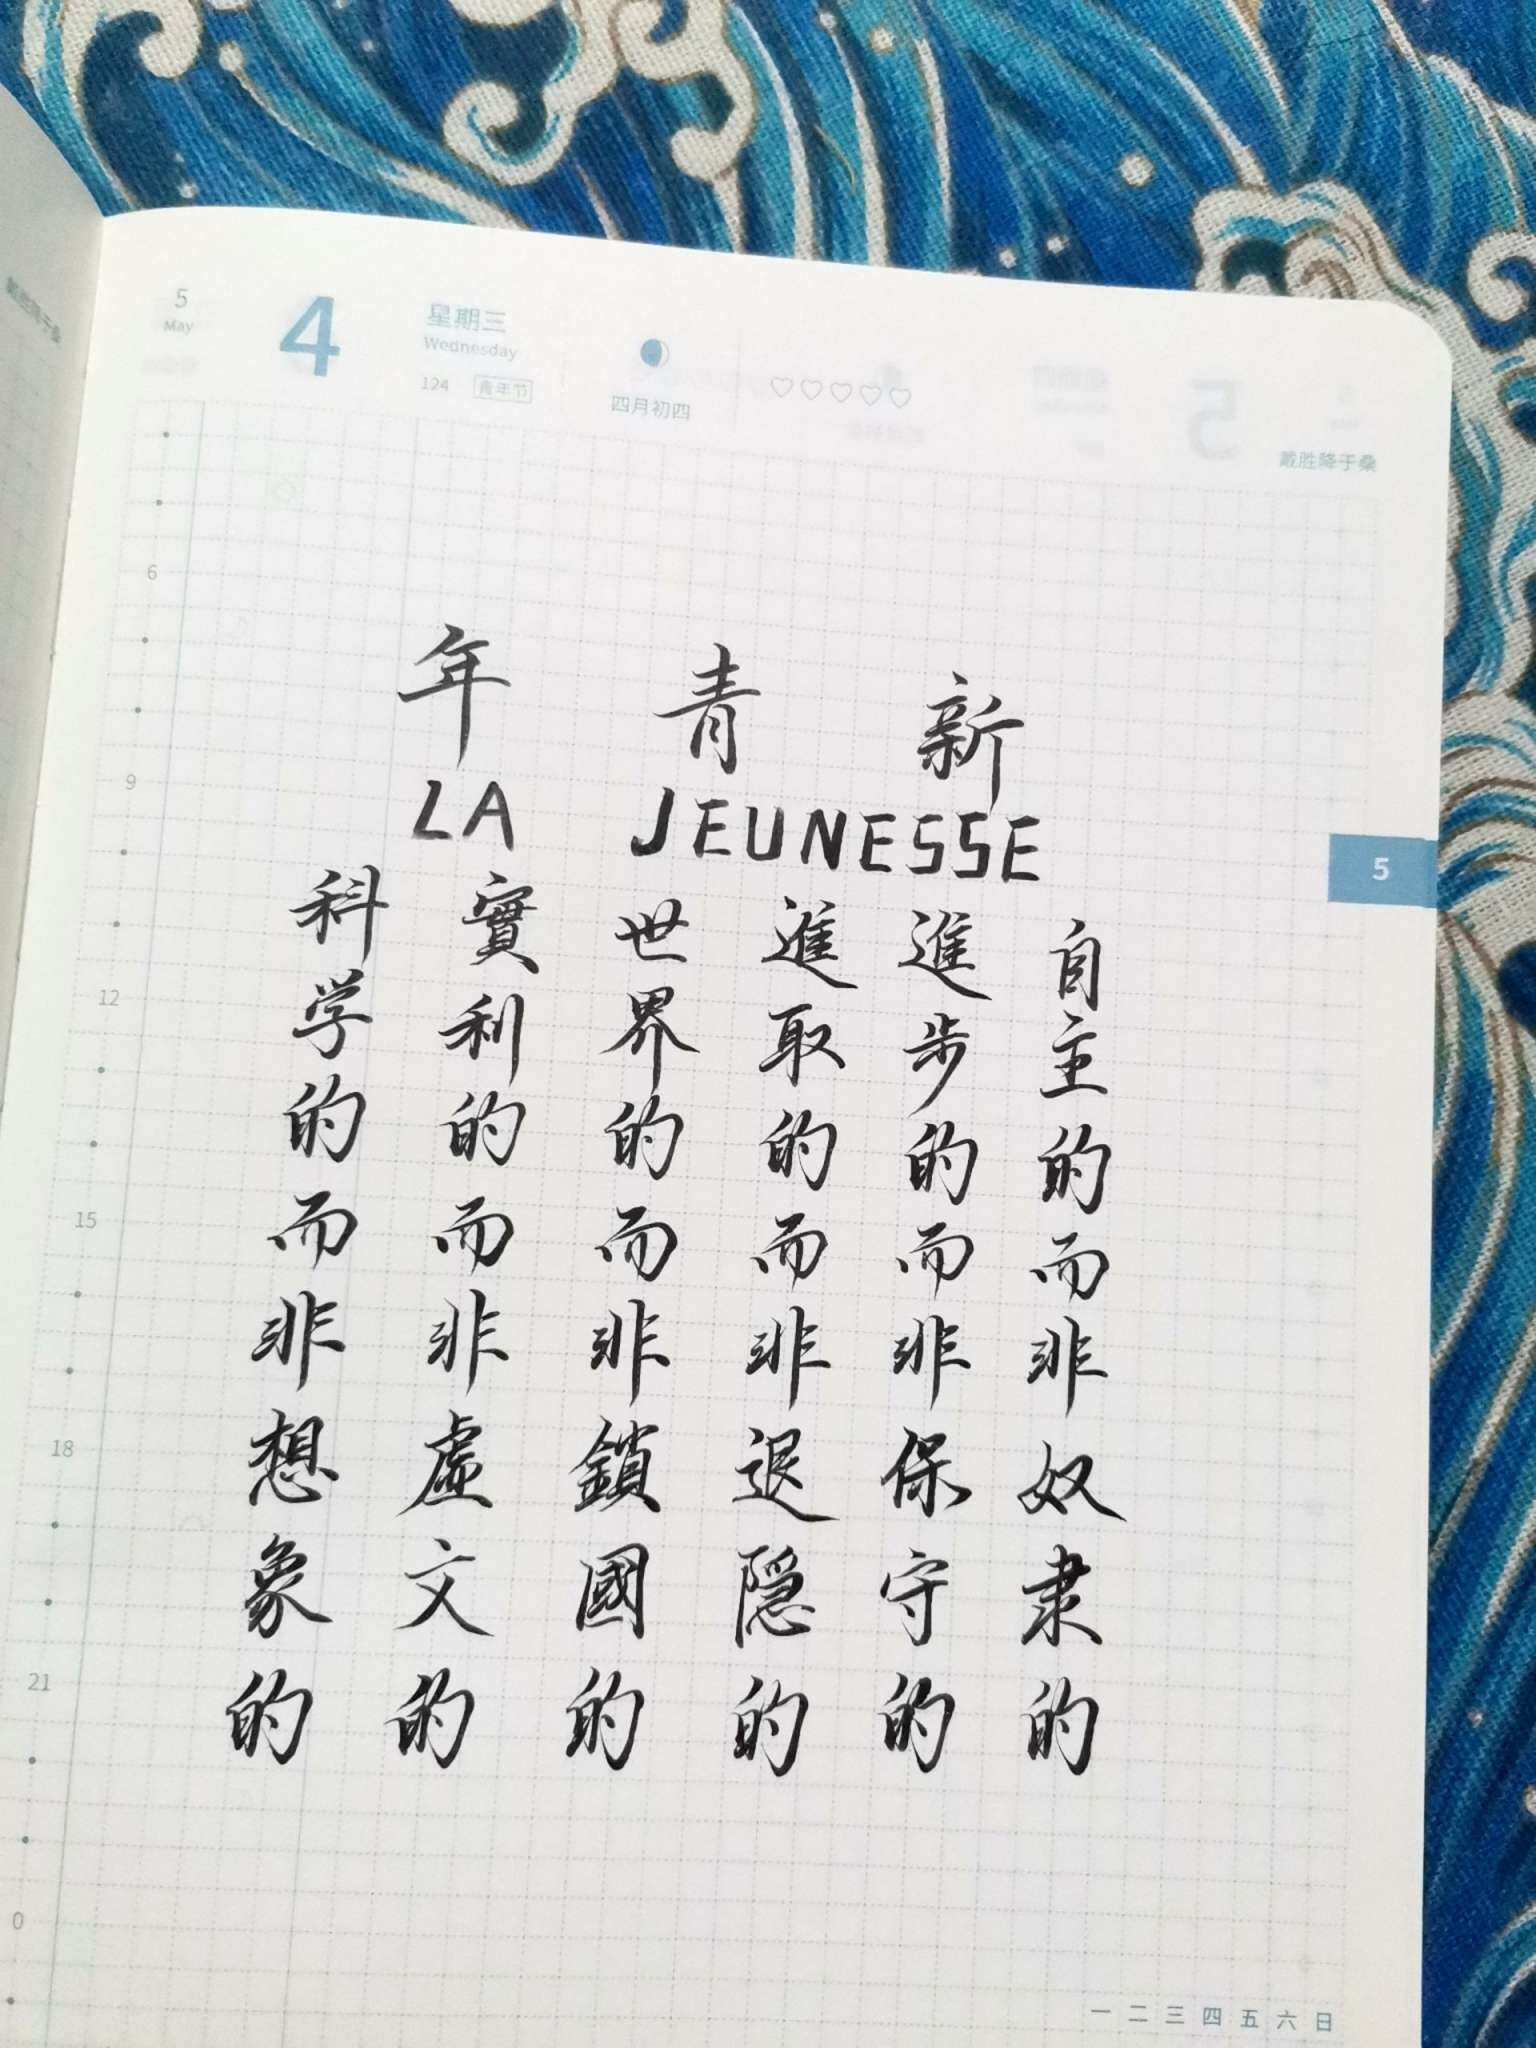 5
May
4
星期三
Wednesday
124 青年节
四月初四
戴胜降于桑
新青年
LA JEUNESSE
自主的而非奴隶的
進步的而非保守的
進取的而非退隐的
世界的而非鎖國的
實利的而非虚文的
科学的而非想象的
6
9
12
15
18
21
0
5
一 二 三 四 五 六 日